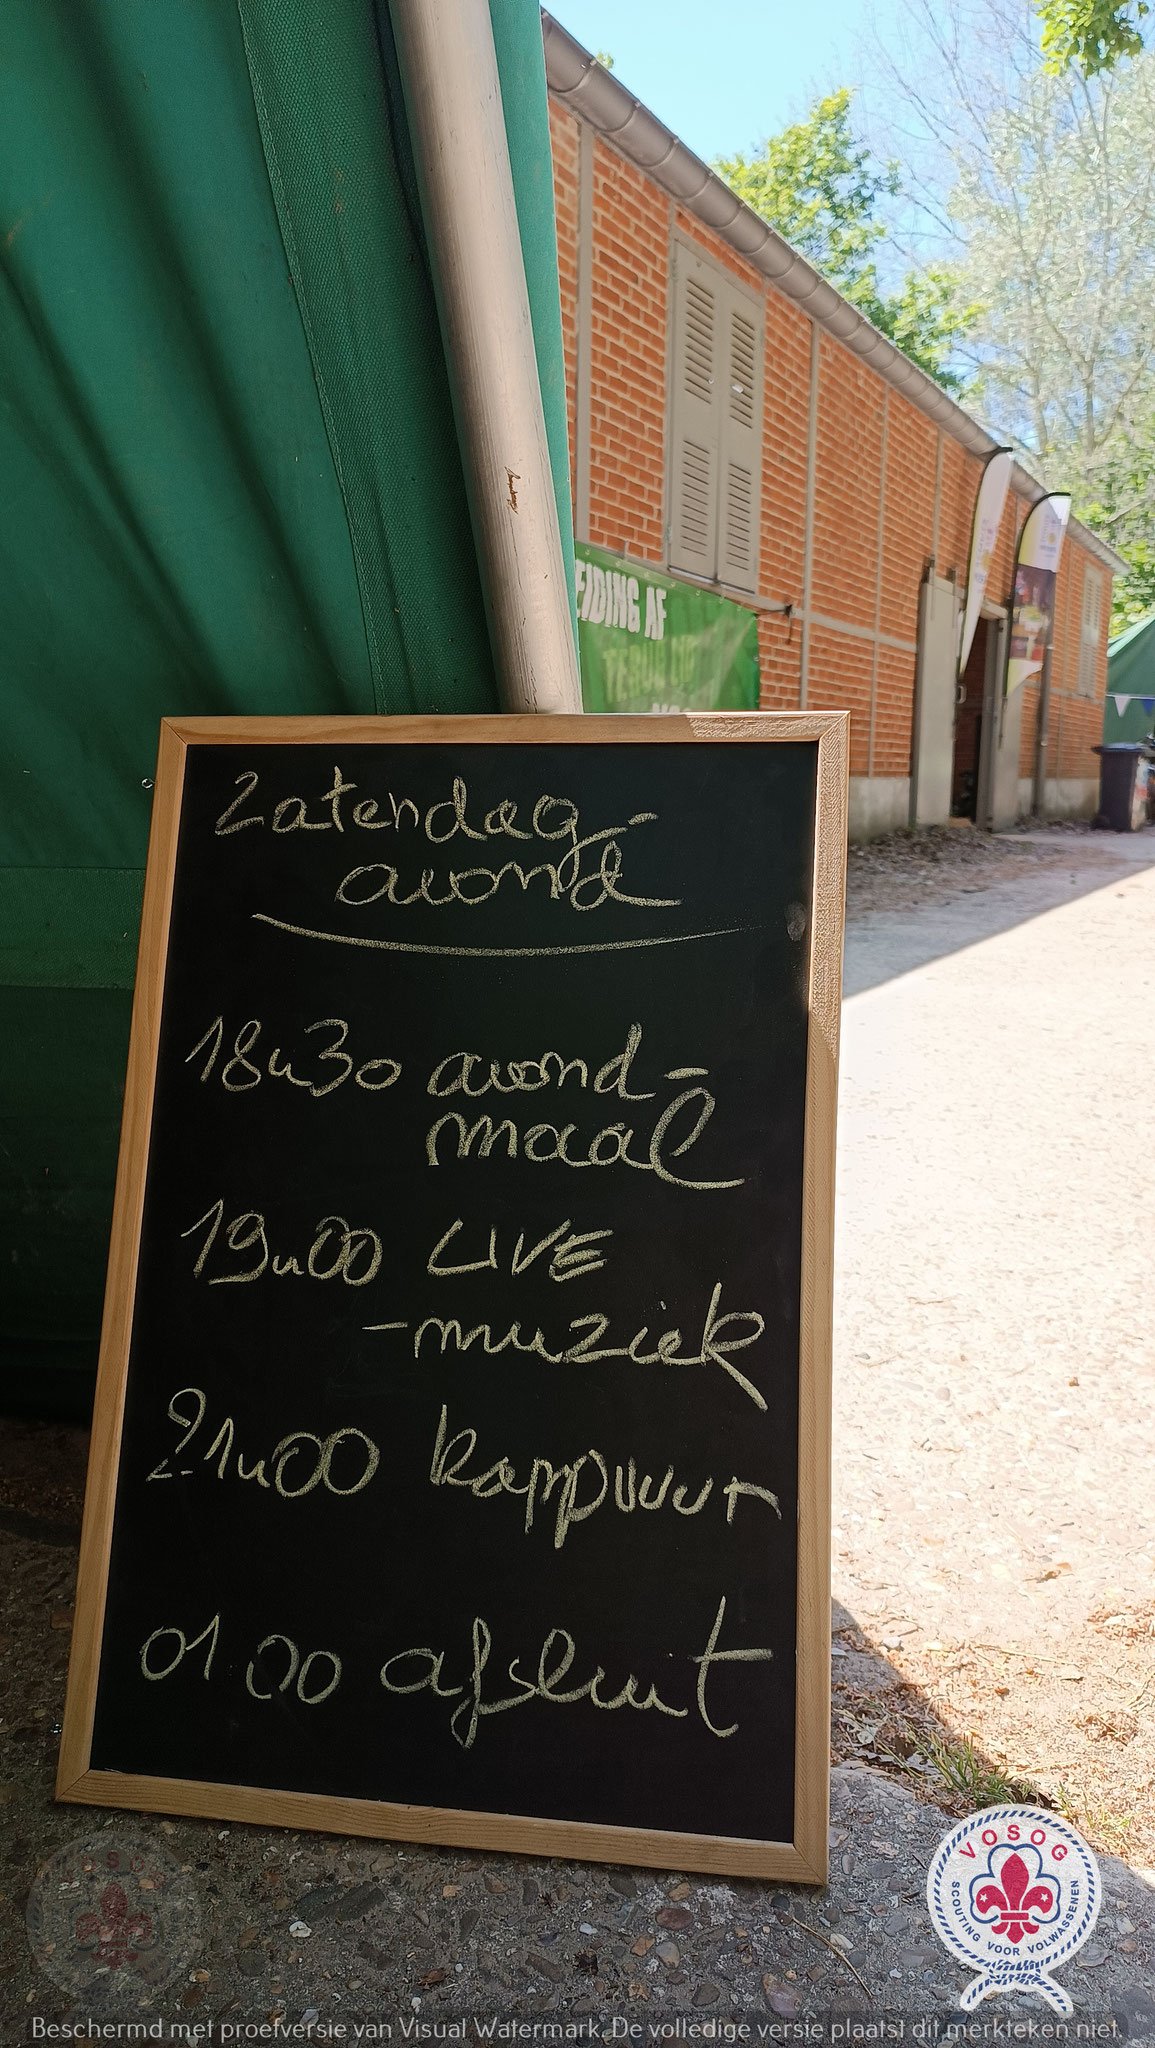 EIDING AF
TERUG
Zatendag-
avond
18u30 avond-
maal
19u00 LIVE
-muziek
21u00 kappvuur
01 00 afsluit
VOSOG
SCOUTING VOOR VOLWASSENEN
Beschermd met proefversie van Visual Watermark. De volledige versie plaatst dit merkteken niet.